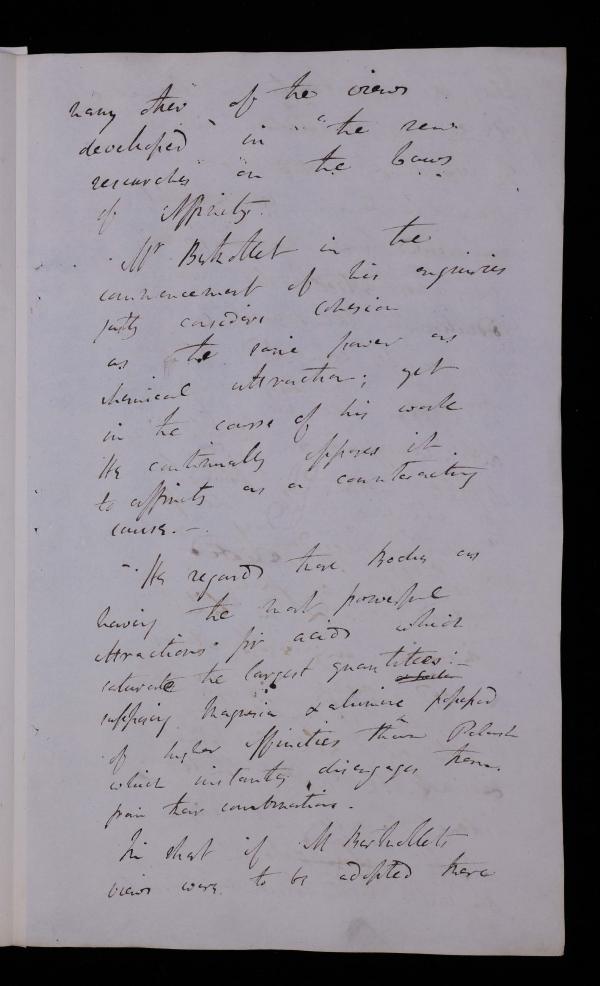 many other of the views
developed in "the new
researches" on the Laws
of Affinity.
Mr Berthollet in the
commencement of his enquiries
justly considers cohesion
as the same power as
chemical attraction; yet
in the course of his work
He continually opposes it
to affinity as a counteracting
cause. -
He regards those Bodies as
having the most powerful
attractions for acids which
saturate the largest quantities: -
supposing Magnesia & alumine possessed
of higher affinities than Potash
which instantly disengages them
from their combinations.
In short if M Berthollets
views were to be adopted there